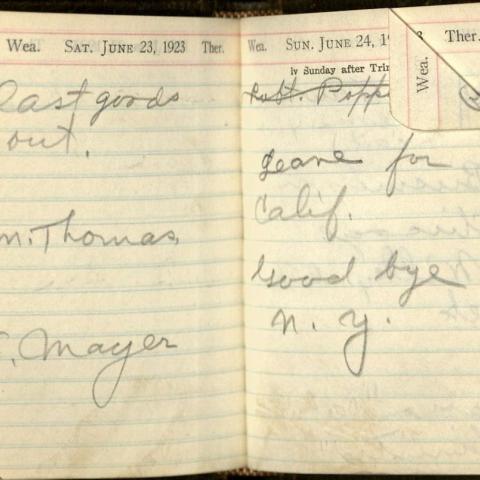 Wea. SAT. JUNE 23, 1923 Ther.
last goods
out.
m. Thomas
. Mayer
Wea. SUN. JUNE 24, 19
iv Sunday after Trin
Leave for
Calif.
Good bye
n. y.
Ther.
Wea.